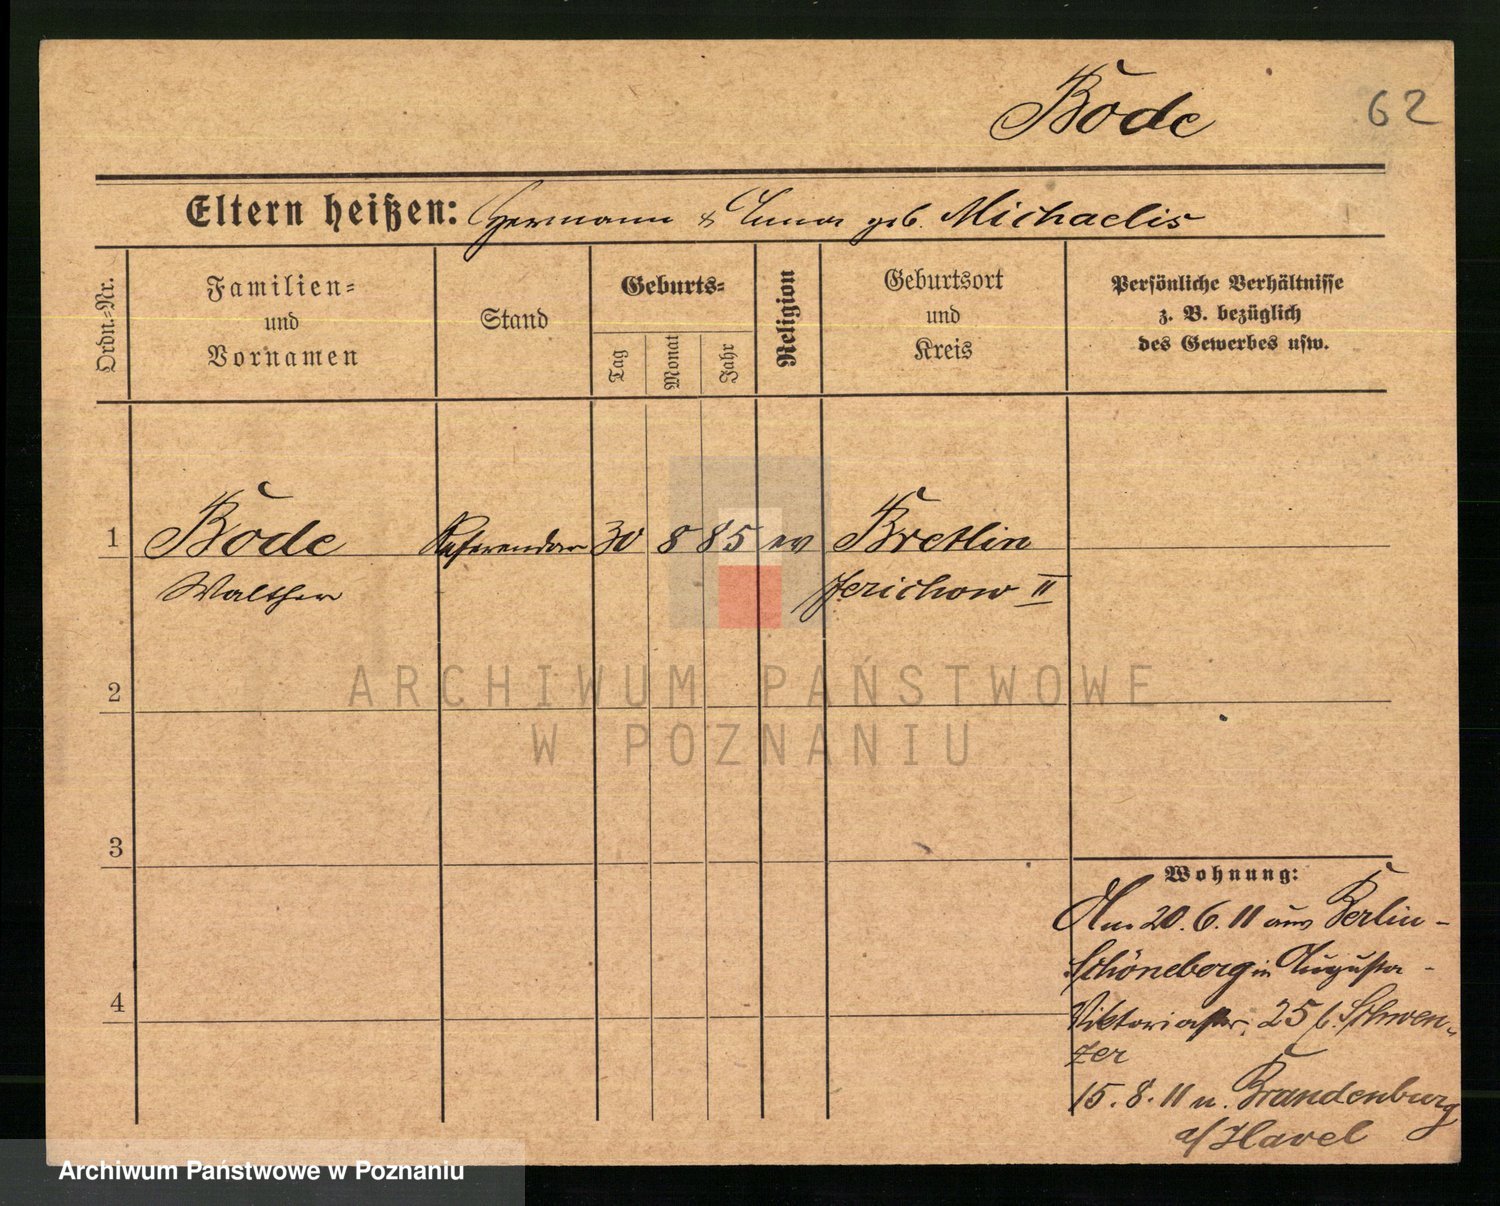 Bode
62
Eltern heißen: Hermann & Anna geb. Michaelis
Ordn.-Nr.
Familien-
und
Vornamen
Stand
Geburts-
Tag
Monat
Jahr
Religion
Geburtsort
und
Kreis
Persönliche Verhältnisse
z. B. bezüglich
des Gewerbes usw.
1 Bode Referendar 30 8 85 ev Bretlin
Walther Jerichow II
2
ARCHIWUM PAŃSTWOWE
W POZNANIU
3
Wohnung:
Am 20.6.11 aus Berlin-
Schöneberg in Augusta-
Viktoriastr. 25 b. Schwen-
zer
4
15.8.11 n. Brandenburg
a/Havel
Archiwum Państwowe w Poznaniu